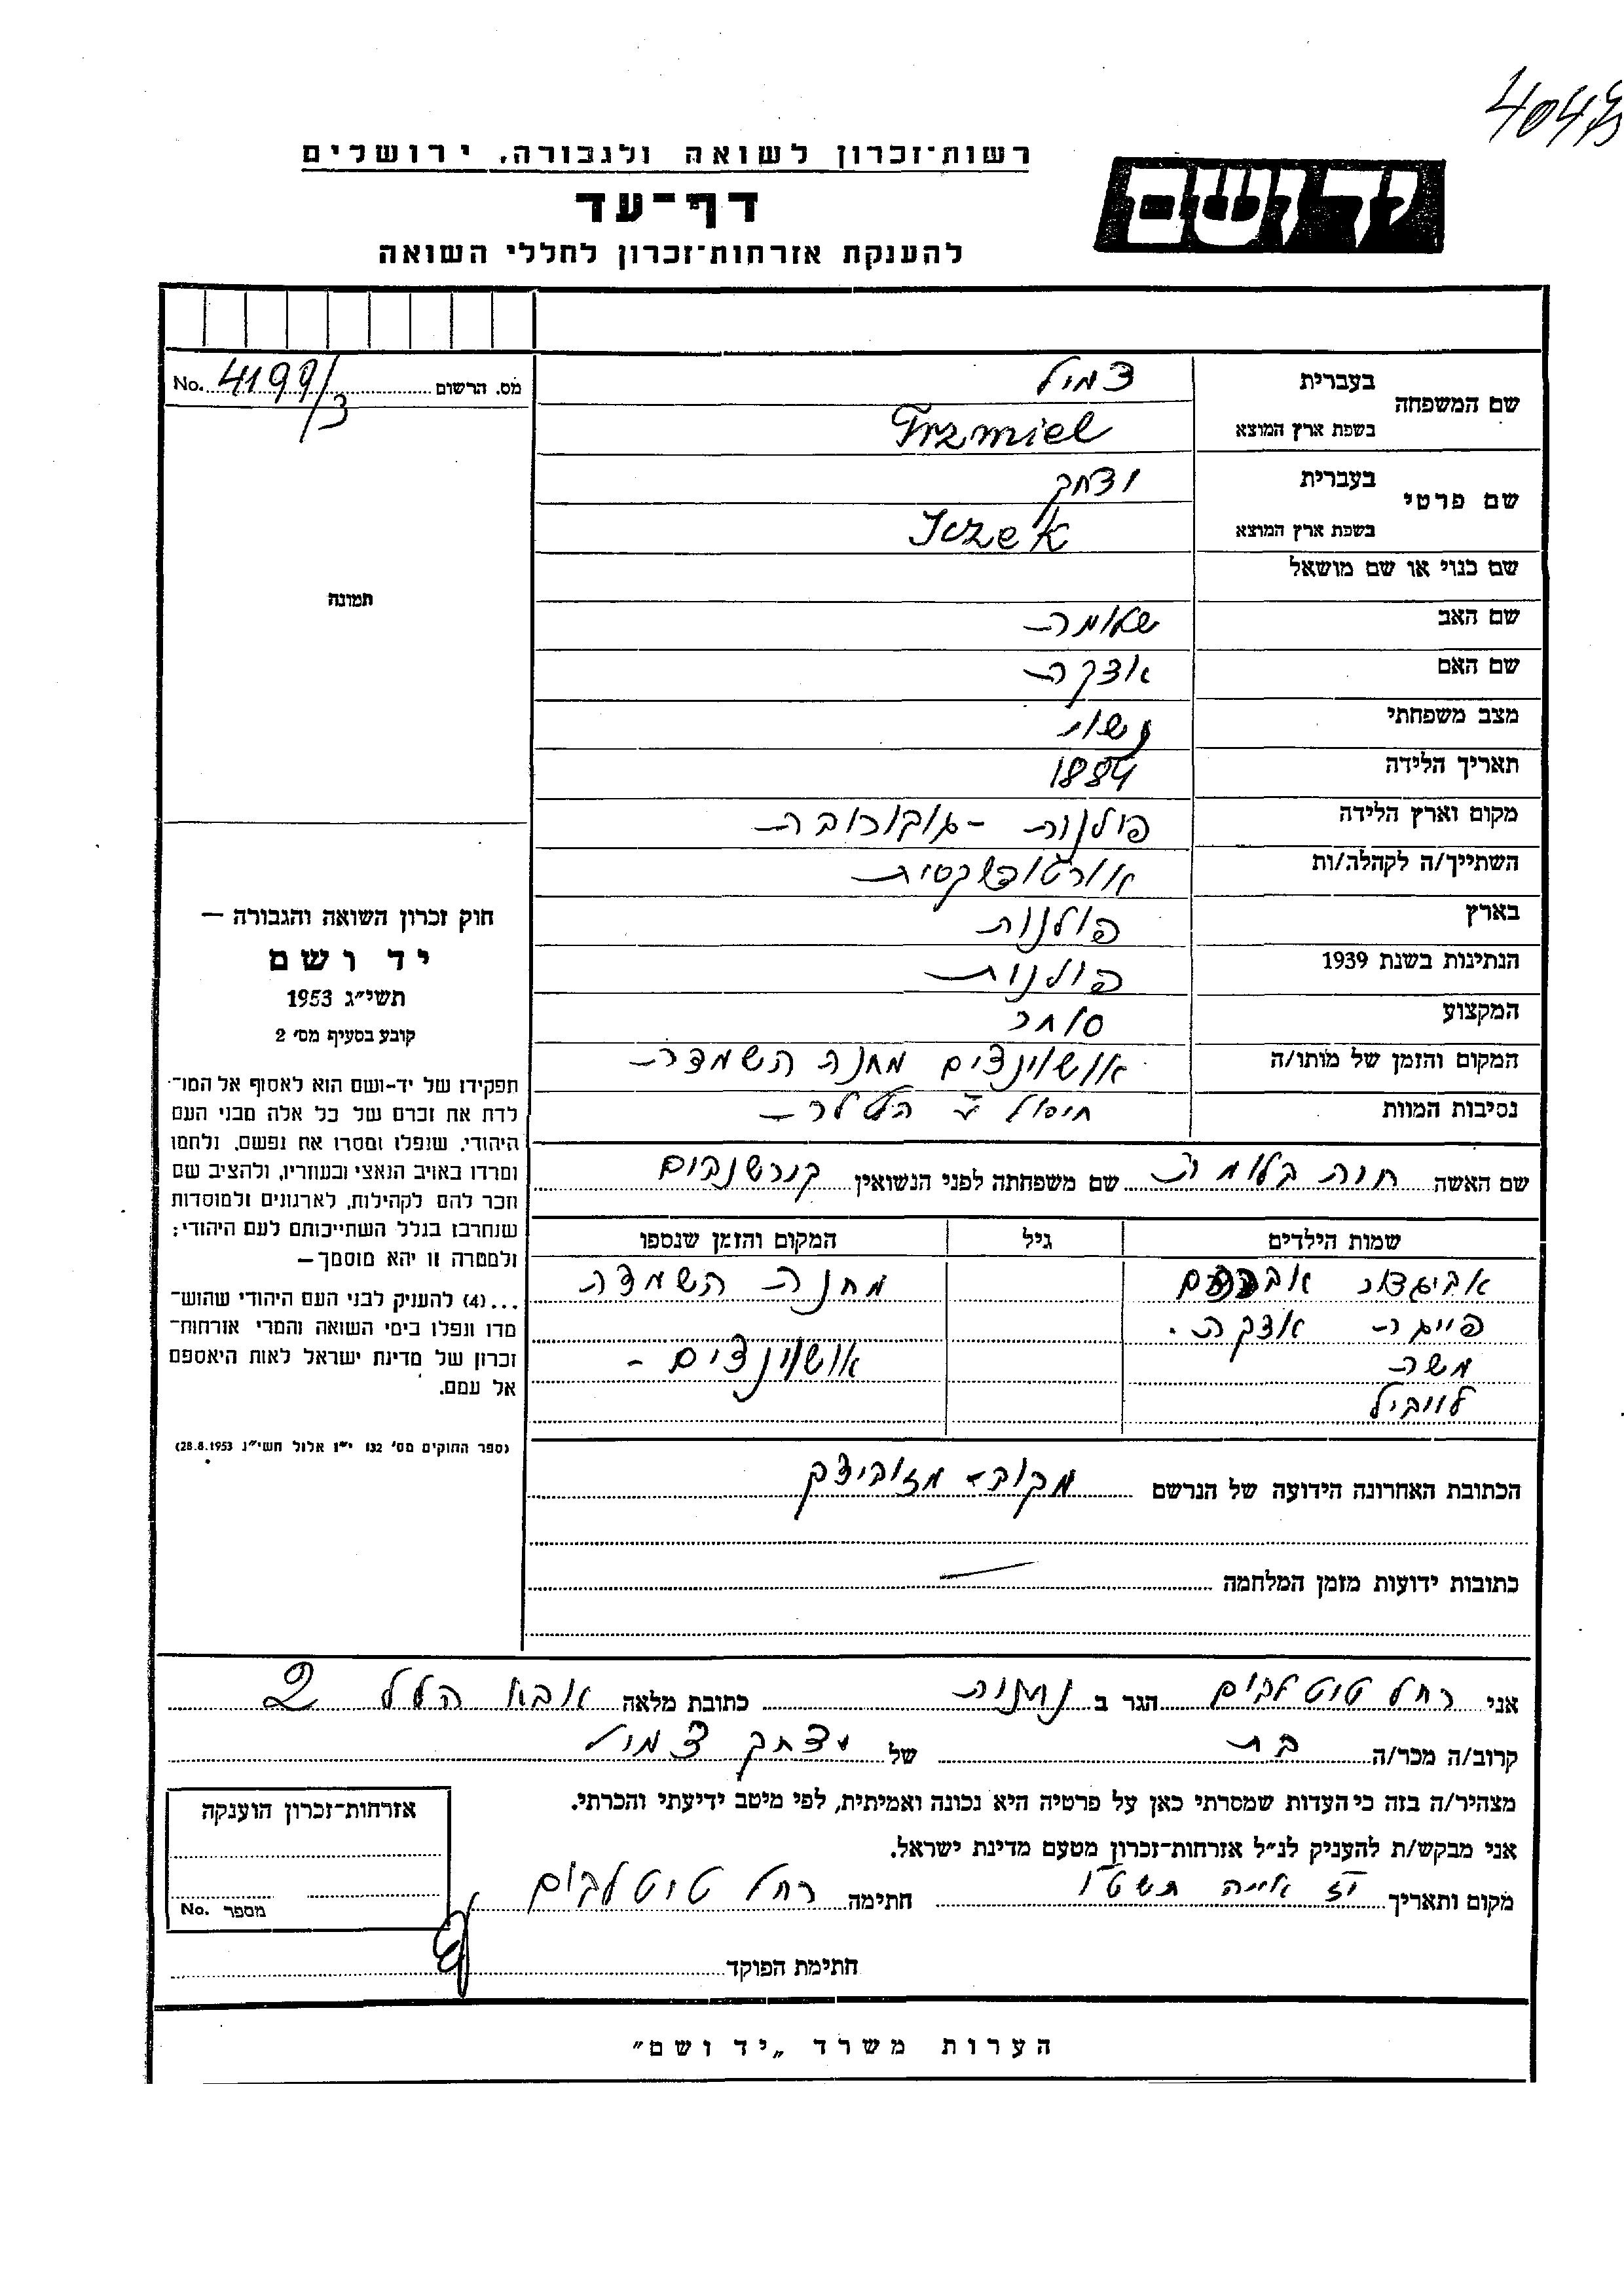 רשות־זכרון לשואה ולגבורה, ירושלים
יד ושם
דף־עד
להענקת אזרחות־זכרון לחללי השואה
מס. הרשום 4199/3 No.
שם המשפחה
בעברית
בשפת ארץ המוצא Frzmiel
שם פרטי
בעברית יצחק
בשפת ארץ המוצא Iczek
שם כנוי או שם מושאל
שם האב שלומה
שם האם
מצב משפחתי נשוי
תאריך הלידה 1884
מקום וארץ הלידה פולנות
השתייך/ה לקהלה/ות
בארץ פולנות
הנתינות בשנת 1939 פולנות
המקצוע סוחר
המקום והזמן של מותו/ה אושוינצים מחנה השמדה
נסיבות המוות חיסול
שם האשה חוה בלומה שם משפחתה לפני הנשואין
שמות הילדים גיל המקום והזמן שנספו
מחנה השמדה
פייגה
משה אושוינצים -
לייביל
הכתובת האחרונה הידועה של הנרשם מקוב - מזוביצק
כתובות ידועות מזמן המלחמה
תמונה
חוק זכרון השואה והגבורה —
יד ושם
תשי״ג 1953
קובע בסעיף מס׳ 2
תפקידו של יד-ושם הוא לאסוף אל המו־
לדת את זכרם של כל אלה מבני העם
היהודי, שנפלו ומסרו את נפשם, נלחמו
ומרדו באויב הנאצי ובעוזריו, ולהציב שם
וזכר להם לקהילות, לארגונים ולמוסדות
שנחרבו בגלל השתייכותם לעם היהודי;
ולמטרה זו יהא מוסמך —
...(4) להעניק לבני העם היהודי שהוש־
מדו ונפלו בימי השואה והמרי אזרחות־
זכרון של מדינת ישראל לאות היאספם
אל עמם.
(ספר החוקים מס׳ 132 י״ז אלול תשי״ג 28.8.1953)
אני רחל טיטלבוים הגר ב נתניה כתובת מלאה אבא הלל 2
קרוב/ה מכר/ה בת של יצחק
מצהיר/ה בזה כי העדות שמסרתי כאן על פרטיה היא נכונה ואמיתית, לפי מיטב ידיעתי והכרתי.
אני מבקש/ת להעניק לנ״ל אזרחות־זכרון מטעם מדינת ישראל.
מקום ותאריך חתימה רחל טיטלבוים
חתימת הפוקד
אזרחות־זכרון הוענקה
מספר No.
הערות משרד „יד ושם״